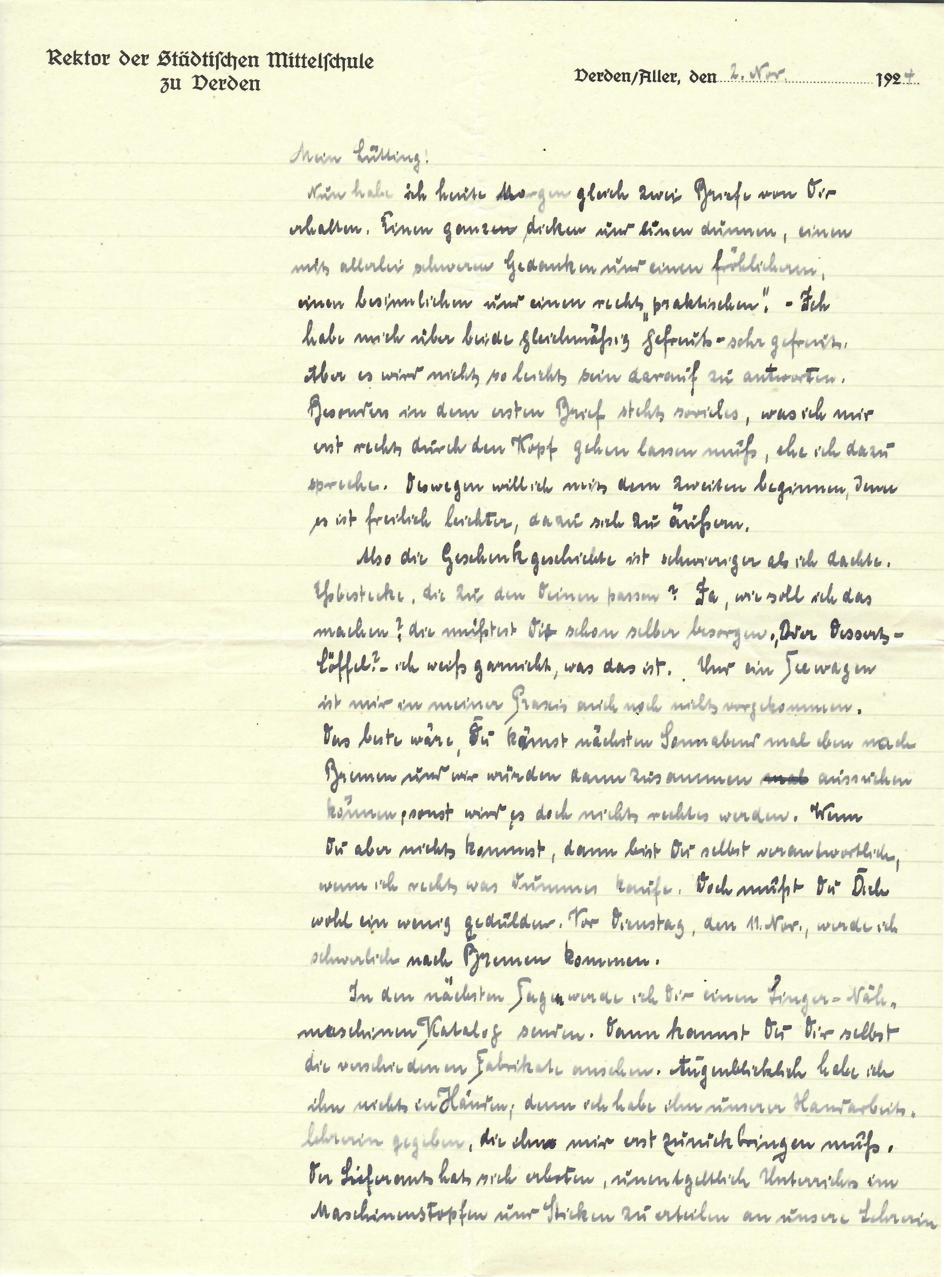 Rektor der Städtischen Mittelschule
zu Verden
Verden/Aller, den 2. Nov. 1924
Mein Lütting!
Nun habe ich heute Morgen gleich zwei Briefe von Dir
erhalten. Einen ganzen dicken und einen dünnen, einen
mit allerlei schweren Gedanken und einen fröhlicheren,
einen besinnlichen und einen recht „praktischen". - Ich
habe mich über beide gleichmäßig gefreut - sehr gefreut.
Aber es wird nicht so leicht sein darauf zu antworten.
Besonders in dem ersten Brief steht soviel, was ich mir
erst recht durch den Kopf gehen lassen muß, ehe ich dazu
spreche. Deswegen will ich mit dem zweiten beginnen, denn
es ist freilich leichter, dazu sich zu äußern.
Also die Geschenkgeschichte ist schwieriger als ich dachte.
Eßbestecke, die zu den Deinen passen? Ja, wie soll ich das
machen? die müßtest Du schon selber besorgen. „Oder Dessert-
löffel?" - ich weiß garnicht, was das ist. Und ein Teewagen
ist mir in meiner Praxis auch noch nicht vorgekommen.
Das beste wäre, Du kämst nächsten Sonnabend mal eben nach
Bremen und wir würden dann zusammen mal aussuchen
können, sonst wird es doch nichts rechtes werden. Wenn
Du aber nicht kommst, dann bist Du selbst verantwortlich,
wenn ich recht was dummes kaufe. Doch mußt Du Dich
wohl ein wenig gedulden. Vor Dienstag, den 11. Nov., werde ich
schwerlich nach Bremen kommen.
In den nächsten Tagen werde ich Dir einen Singer-Näh-
maschinen Katalog senden. Dann kannst Du Dir selbst
die verschiedenen Fabrikate ansehen. Augenblicklich habe ich
ihn nicht in Händen; denn ich habe ihn unserer Handarbeits-
lehrerin gegeben, die ihn mir erst zurückbringen muß.
Der Lieferant hat sich erboten, unentgeltlich Unterricht im
Maschinenstopfen und Sticken zu erteilen an unsere Lehrerin